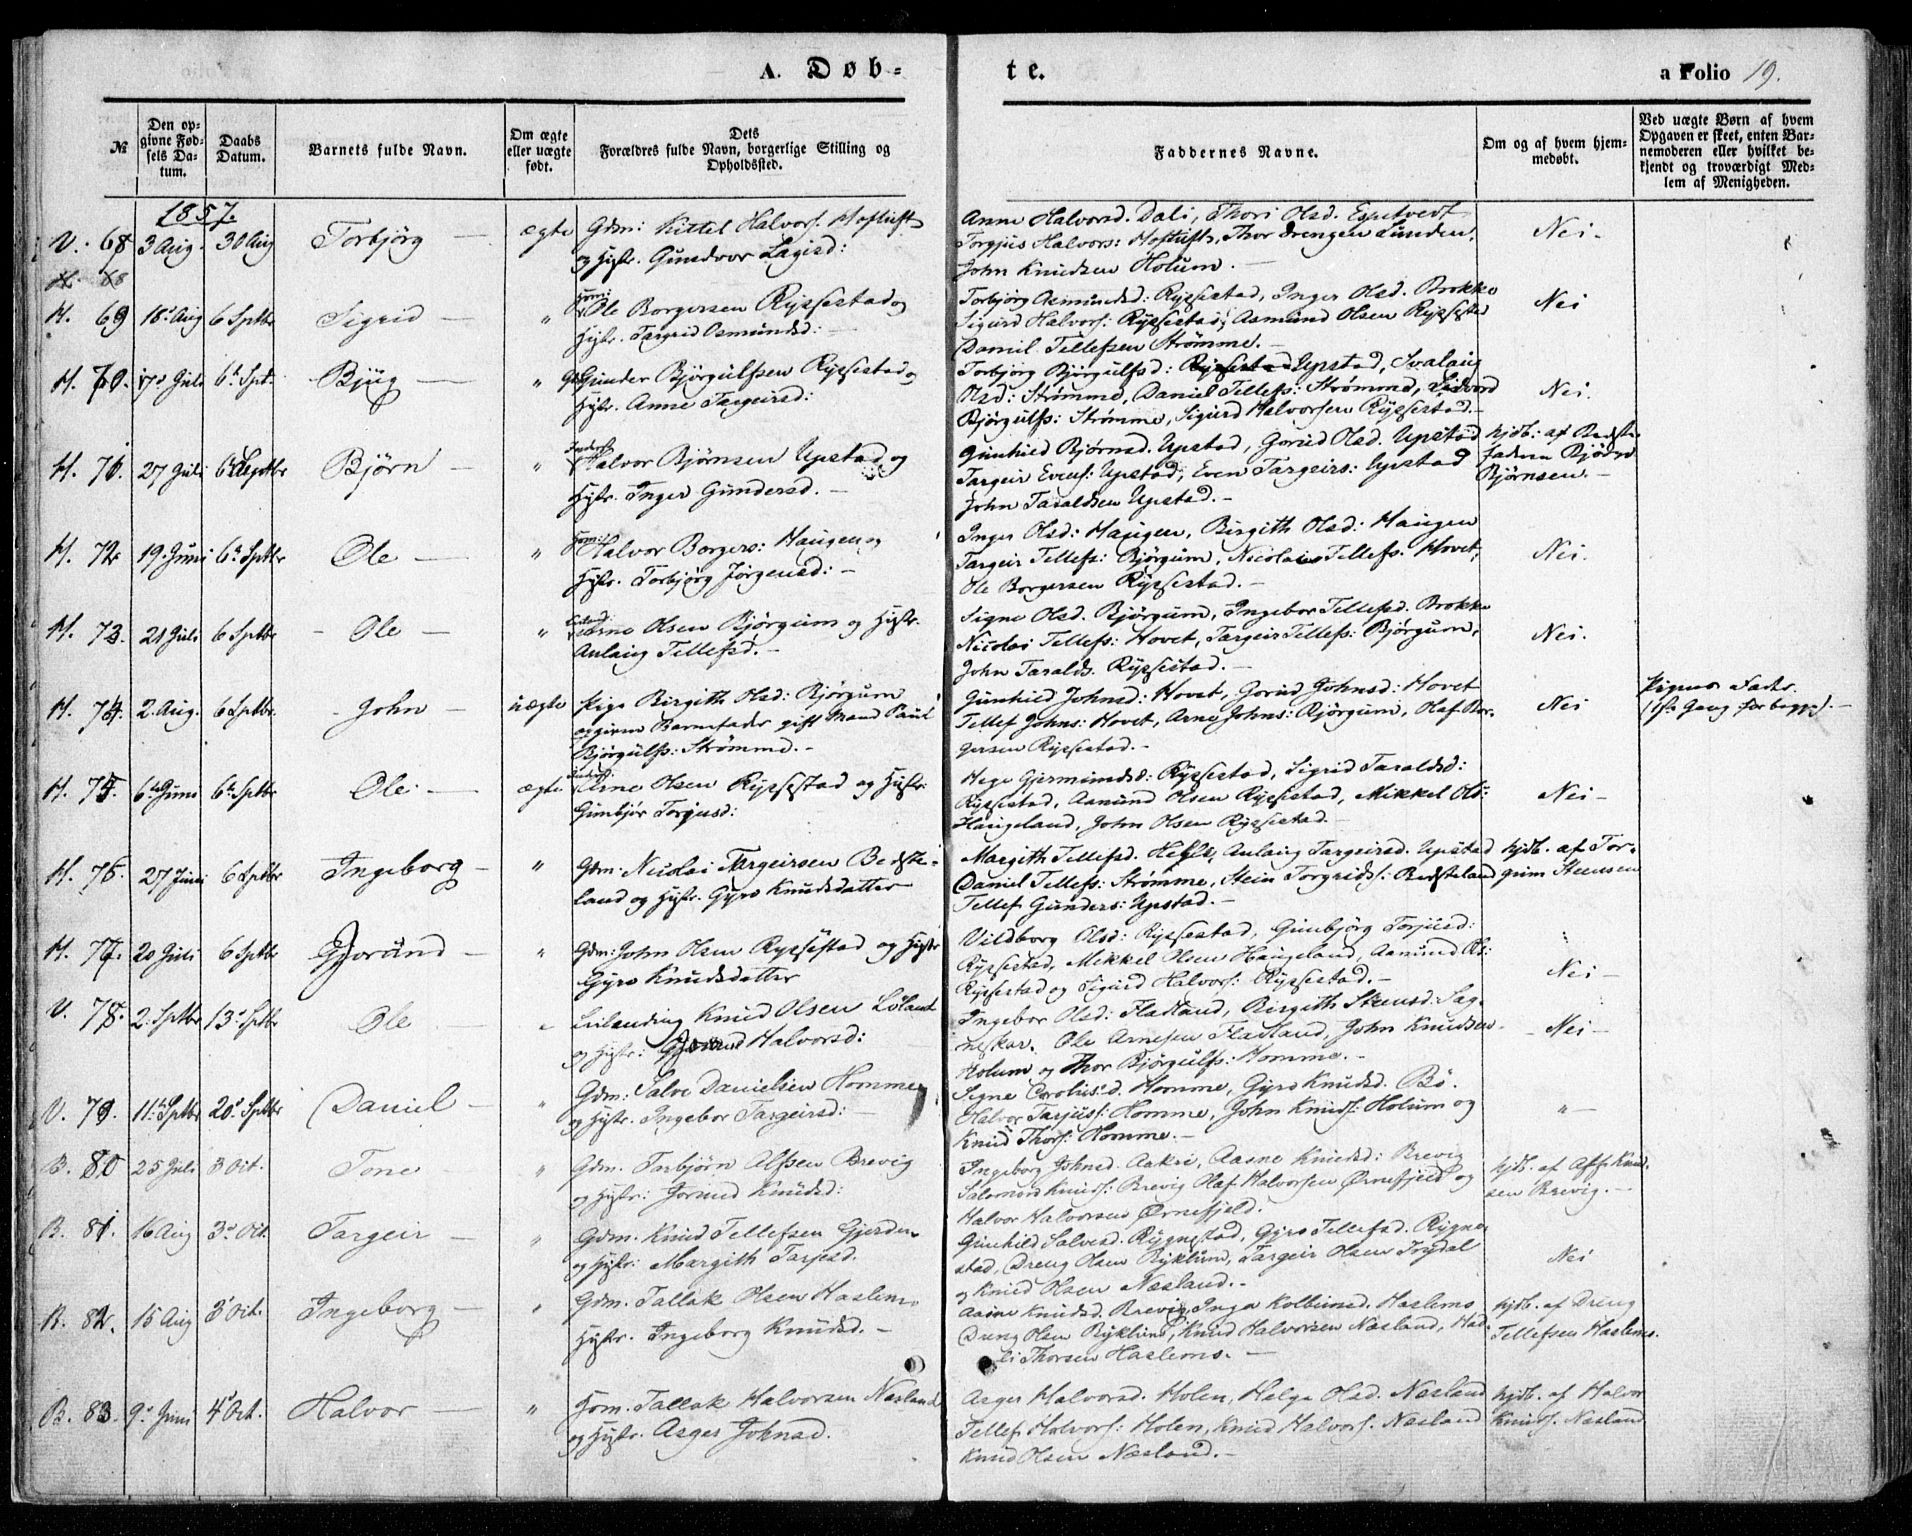 A. Døb-
te.
a Folio 19.
№
Den op-
givne Fød-
sels Da-
tum.
Daabs
Datum.
Barnets fulde Navn.
Om ægte
eller uægte
født.
Dets
Forældres fulde Navn, borgerlige Stilling og
Opholdssted.
Faddernes Navne.
Om og af hvem hjem-
medøbt.
Ved uægte Børn af hvem
Opgaven er skeet, enten Bar-
nemoderen eller hvilket be-
kjendt og troværdigt Med-
lem af Menigheden.
1857.
V. 68 3 Aug. 30 Aug Torbjörg — ægte Gdm: Kittel Halvors. Hoftuft
og Hustr. Gundvor Lagisd:
Anne Halvorsd. Dali, Thori Olsd. Espetvedt
Torgjus Halvors: Hoftuft, Thor Drengsen Lunden,
John Knudsen Holum. —
Nei-
H. 69 18. Aug 6 Sptbr Sigrid — " Huus: Ole Borgersen Rysstad og
Hustr. Targerd Osmundsd: —
Torbjörg Asmundsd: Rysestad, Inger Olsd. Brokke
Sigurd Halvors: Rysestad, Asmund Olsen Rysestad
Daniel Tellefsen Strømme. —
Nei
H. 70. 17. Juli 6. Spt. Bjug — " Gunder Björgulfsen Rysestad og
Hustr. Anne Targeirsd:
Torbjörg Björgulfsd: Upstad, Svalaug
Olsd: Strømme, Daniel Tellefs: Strømme,
Björgulfs: Strømme, Sigurd Halvorsen Rysestad. —
Nei.
H. 71. 27 Juli 6. Septbr Björn — " Halvor Bjørnsen Upstad og
Hustr. Inger Gundersd. —
Gunhild Bjørnsd. Upstad, Gorud Olsd. Upstad
Targeir Evens: Upstad, Even Targeirs: Upstad
John Taraldsen Upstad. —
hjdb: af Bedste-
faderen
Bjørnsen. —
H. 72. 19. Juni 6. Sptbr Ole — " Huus: Halvor Borgers: Haugen og
Hustr. Torbjörg Jörgensd: —
Inger Olsd: Haugen, Birgith Olsd: Haugen
Targeir Tellefs: Bjørgum, Nicolai Tellefs: Hovet,
Ole Borgersen Rysestad. —
Nei.
H. 73. 21 Juli 6 Sptbr - Ole — " Arne Olsen Bjørgum og Hustr.
Aulaug Tellefsd. —
Signe Olsd. Bjørgum, Ingebor Tellefsd. Brokke
Nicolai Tellefs: Hovet, Targeir Tellefs: Bjørgum,
John Taralds. Rysestad. —
Nei.
H. 74. 2. Aug. 6 Sptbr. - John — uægte Pige Birgith Olsd: Bjørgum
angiven Barnefader gift Mand Paul
Bjørgulfs: Strømme. —
Gunhild Johnsd: Hovet, Gorud Johnsd: Hovet
Tellef Johns: Hovet, Arne Johns: Bjørgum, Olaf Bor-
gersen Rysestad. —
Nei
Pigens Fader.
(1ste Gang for begge). —
H. 75. 6. Juni 6. Sptbr Ole. — ægte Arne Olsen Rysestad og Hustr:
Gunbjør Torjusd:
Hege Gjermundsd: Rysestad, Sigrid Taraldsd:
Rysestad, Aasmund Olsen Rysestad, Mikkel Ols:
Haugeland, John Olsen Rysestad. —
Nei —
H. 76. 27 Juni 6 Sptbr Ingeborg — " Gdm: Nicolai Targeirsen Bedste-
land og Hustr. Gyro Knudsdatter
Margith Tellefsd. Helle, Aulaug Targeirsd. Upstad
Daniel Tellefs: Strømme, Stein Torgrids: Bedsteland
Tellef Gunders: Upstad. —
hjdb. af Tor-
grim Steensen
H. 77. 20 Juli 6 Sptbr Gjorund — " Gdm: John Olsen Rysestad og Hustr
Gyro Knudsdatter
Vildborg Olsd: Rysestad, Gunbjörg Torjusd:
Rysestad, Mikkel Olsen Haugeland, Aasmund Ols:
Rysestad og Sigurd Halvors: Rysestad. —
Nei —
V. 78. 2. Sptbr 13. Sptbr Ole — " Knud Olsen Løland
og Hustr: Halvorsd:
Ingebor Olsd: Fladland, Birgith Steensd: Sag-
neskar. Ole Arnesen Fladland, John Knudsen
Holum og Thor Bjørgulfs: Homme. —
- Nei -
V. 79. 11. Sptbr 20. Sptbr Daniel — " Gdm: Salve Danielsen Homme
og Hustr. Ingebor Targeirsd:
Signe Corolusd. Homme, Gyro Knudsd. Bö.
Halvor Tarjus: Homme, John Knuds: Holum og
Knud Thors: Homme. —
" —
B. 80 25 Juli 3 Oct. Tone — " Gdm. Torbjørn Alfsen Brevig
og Hustr: Jorund Knudsd:
Ingeborg Johnsd. Aakre, Aasne Knudsd: Brevig
Salomond Knuds: Brevig Olaf Halvorsen Ørnefjeld og
Halvor Halvorsen Ørnefjeld.
hjdb. af Alf Knud-
sen Brevig. —
B. 81. 16 Aug 3. Oct. Targeir — " Gdm. Knud Tellefsen Gjerden
og Hustr: Margith Tarjesd.
Gunhild Salvesd. Rygnestad, Gyro Tellefsd. Rygne-
stad, Dreng Olsen Byklum, Targeir Olsen Trydal
og Knud Olsen Næsland. —
Nei
B. 82. 15 Aug 3. Oct. Ingeborg — " Gdm. Tallak Olsen Haslem,
Hustr. Ingeborg Knudsd. —
Aasne Knudsd. Brevig, Inga Kolbensd. Haslems
Dreng Olsen Byklum, Knud Halvorsen Næsland, Had-
Thorsen Haslems. —
hjdb. af Dreng
Tellefsen Haslems.
B. 83. 9. Juni 4. Oct. Halvor — " Huusm. Tallak Halvorsen Næsland
og Hustr. Asger Johnsd.
Asger Halvorsd. Holen, Helga Olsd. Næsland
Tellef Halvors: Holen, Knud Halvors. Næsland
Knud Olsen Næsland. —
hjdb. af Halvor
Knuds: Næsland